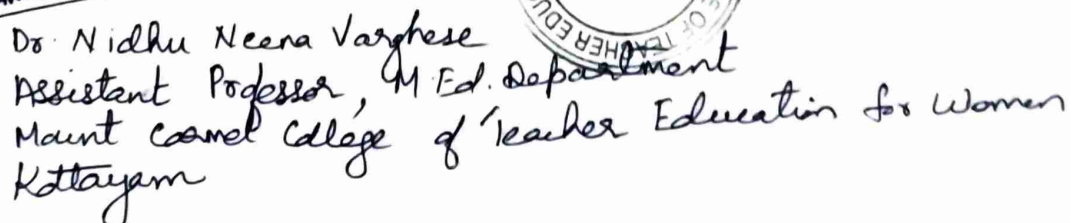 Dr. Nidhu Neena Varghese
Assistant Professor, M.Ed. Department
Mount Carmel College of Teacher Education for Women
Kottayam
OF TEACHER EDU